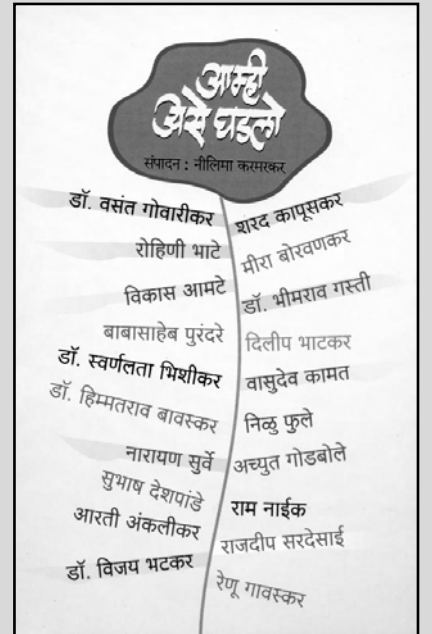 आम्ही
असे घडलो
संपादन : नीलिमा करमरकर
डॉ. वसंत गोवारीकर
रोहिणी भाटे
विकास आमटे
बाबासाहेब पुरंदरे
डॉ. स्वर्णलता भिशीकर
डॉ. हिम्मतराव बावस्कर
नारायण सुर्वे
सुभाष देशपांडे
आरती अंकलीकर
डॉ. विजय भटकर
शरद कापूसकर
मीरा बोरवणकर
डॉ. भीमराव गस्ती
दिलीप भाटकर
वासुदेव कामत
निळु फुले
अच्युत गोडबोले
राम नाईक
राजदीप सरदेसाई
रेणू गावस्कर